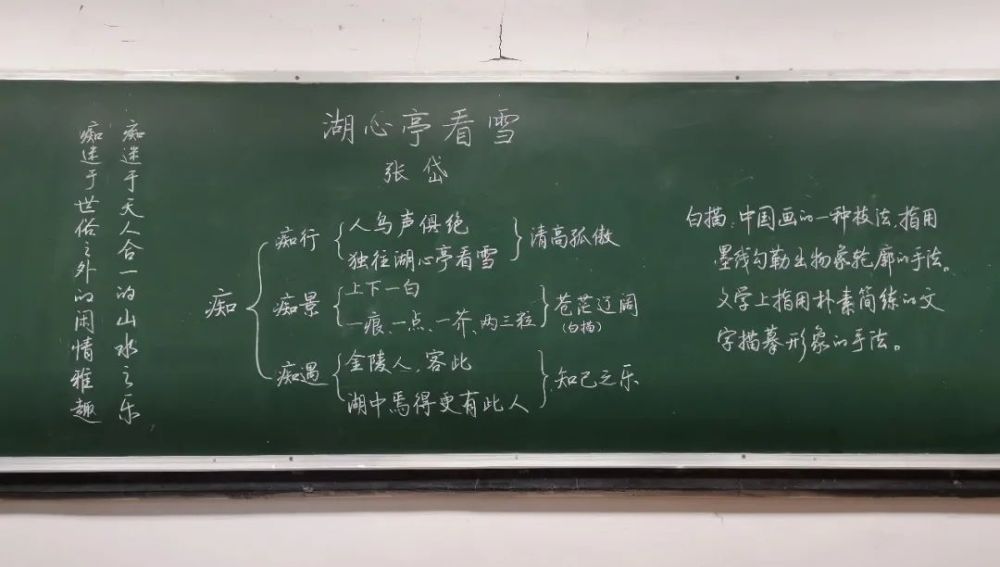 湖心亭看雪
张岱
痴迷于天人合一的山水之乐
痴迷于世俗之外的闲情雅趣
痴
痴行
人鸟声俱绝
独往湖心亭看雪
清高孤傲
痴景
上下一白
一痕、一点、一芥、两三粒
苍茫辽阔
(白描)
痴遇
金陵人，客此
湖中焉得更有此人
知己之乐
白描：中国画的一种技法，指用
墨线勾勒出物象轮廓的手法。
文学上指用朴素简练的文
字描摹形象的手法。